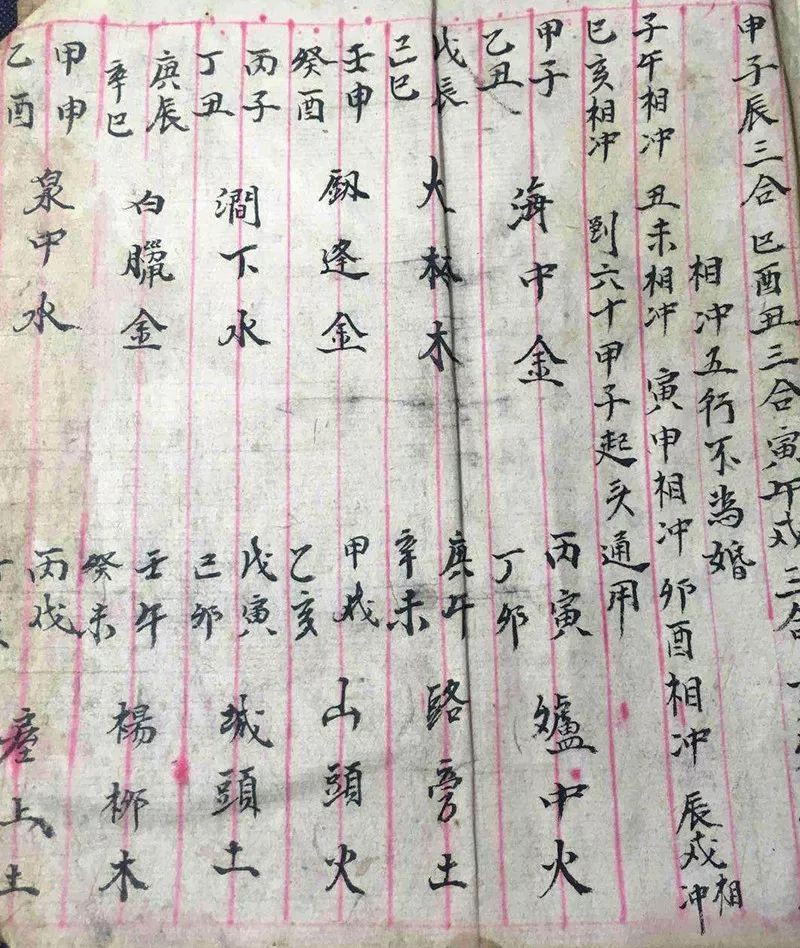 申子辰三合 巳酉丑三合 寅午戌三合
相冲五行不為婚
子午相冲 丑未相冲 寅申相冲 卯酉相冲 辰戌相冲
巳亥相冲 到六十甲子起头通用
甲子乙丑 海中金 丙寅丁卯 爐中火
戊辰己巳 大林木 庚午辛未 路旁土
壬申癸酉 釼逢金 甲戌乙亥 山頭火
丙子丁丑 澗下水 戊寅己卯 城頭土
庚辰辛巳 白臘金 壬午癸未 楊柳木
甲申乙酉 泉中水 丙戌丁 屋上土